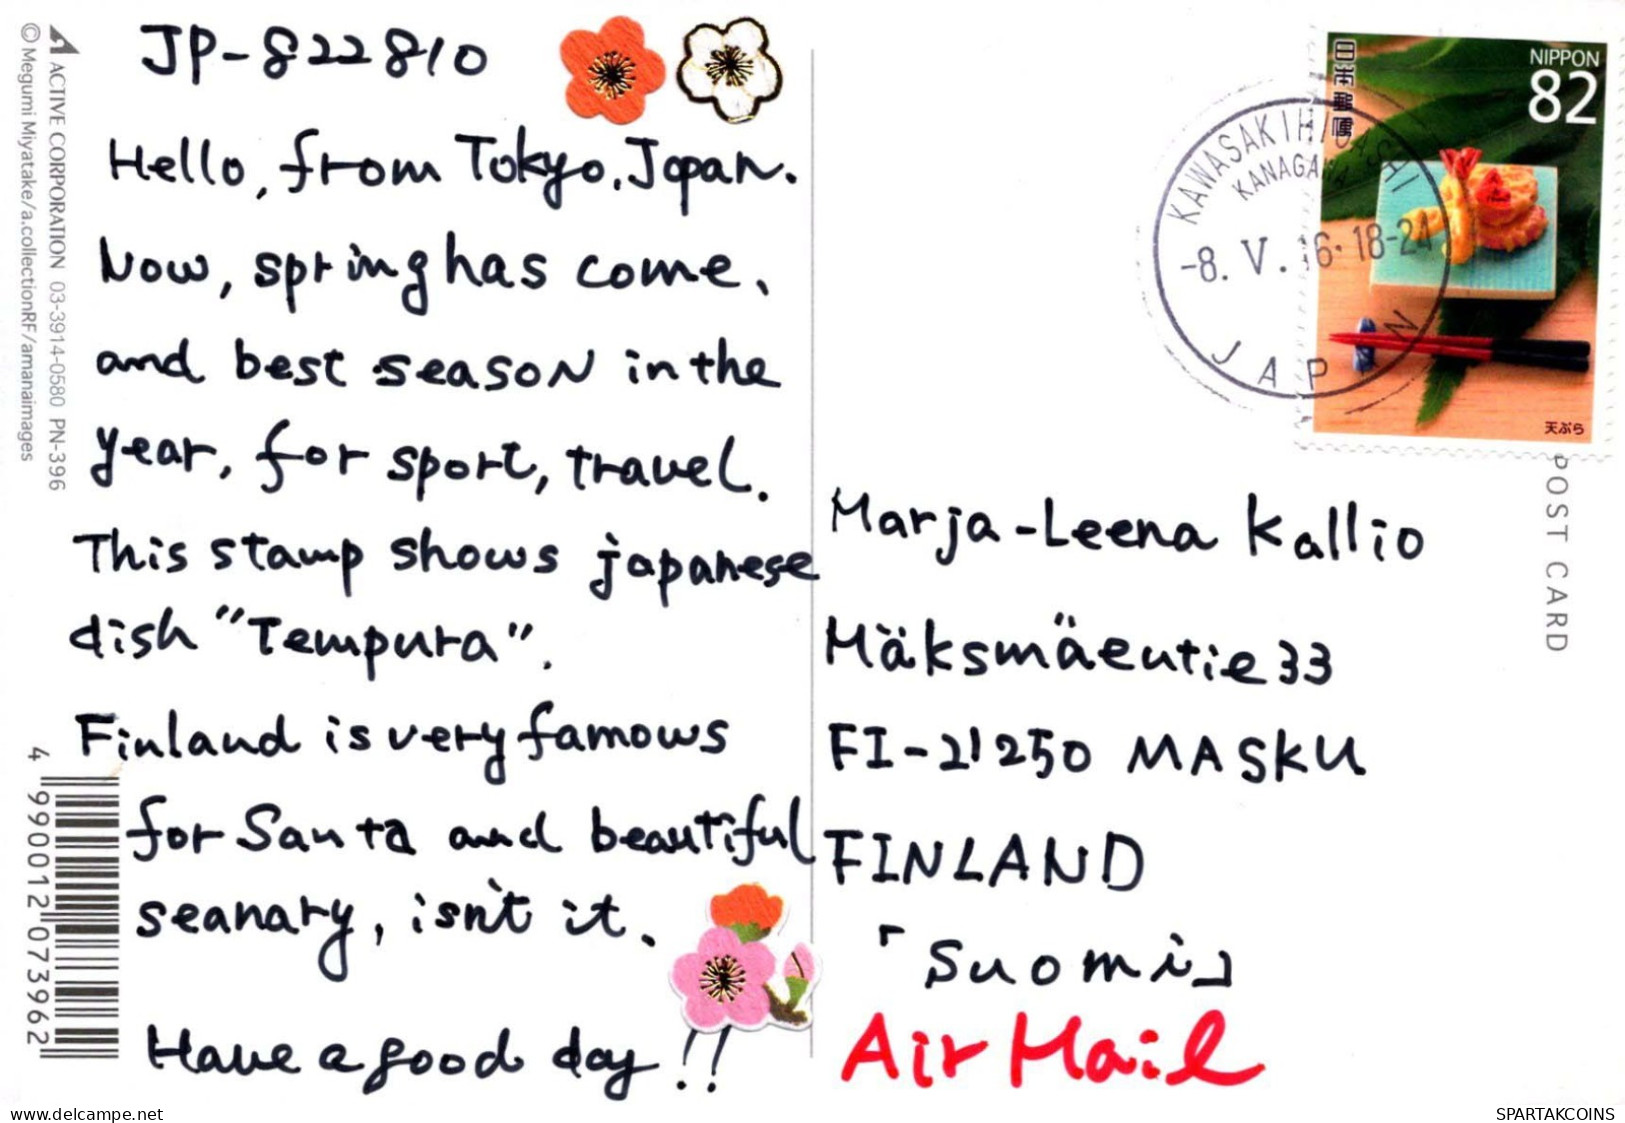 JP-822810
Hello, from Tokyo, Japan.
Now, spring has come,
and best season in the
year, for sport, travel.
This stamp shows japanese
dish "Tempura".
Finland is very famows
for Santa and beautiful
seanary, isn't it.
Have a good day!!
ACTIVE CORPORATION 03-3914-0580 PN-396
© Megumi Miyatake/a.collectionRF/amanaimages
4 990012 073962
日本郵便
NIPPON
82
天ぷら
KAWASAKIHIGASHI
KANAGAWA
-8. V. 16. 18-24
JAPAN
POST CARD
Marja-Leena Kallio
Mäksmäentie 33
FI-21250 MASKU
FINLAND
「Suomi」
Air Mail
delcampe.net
SPARTAKCOINS